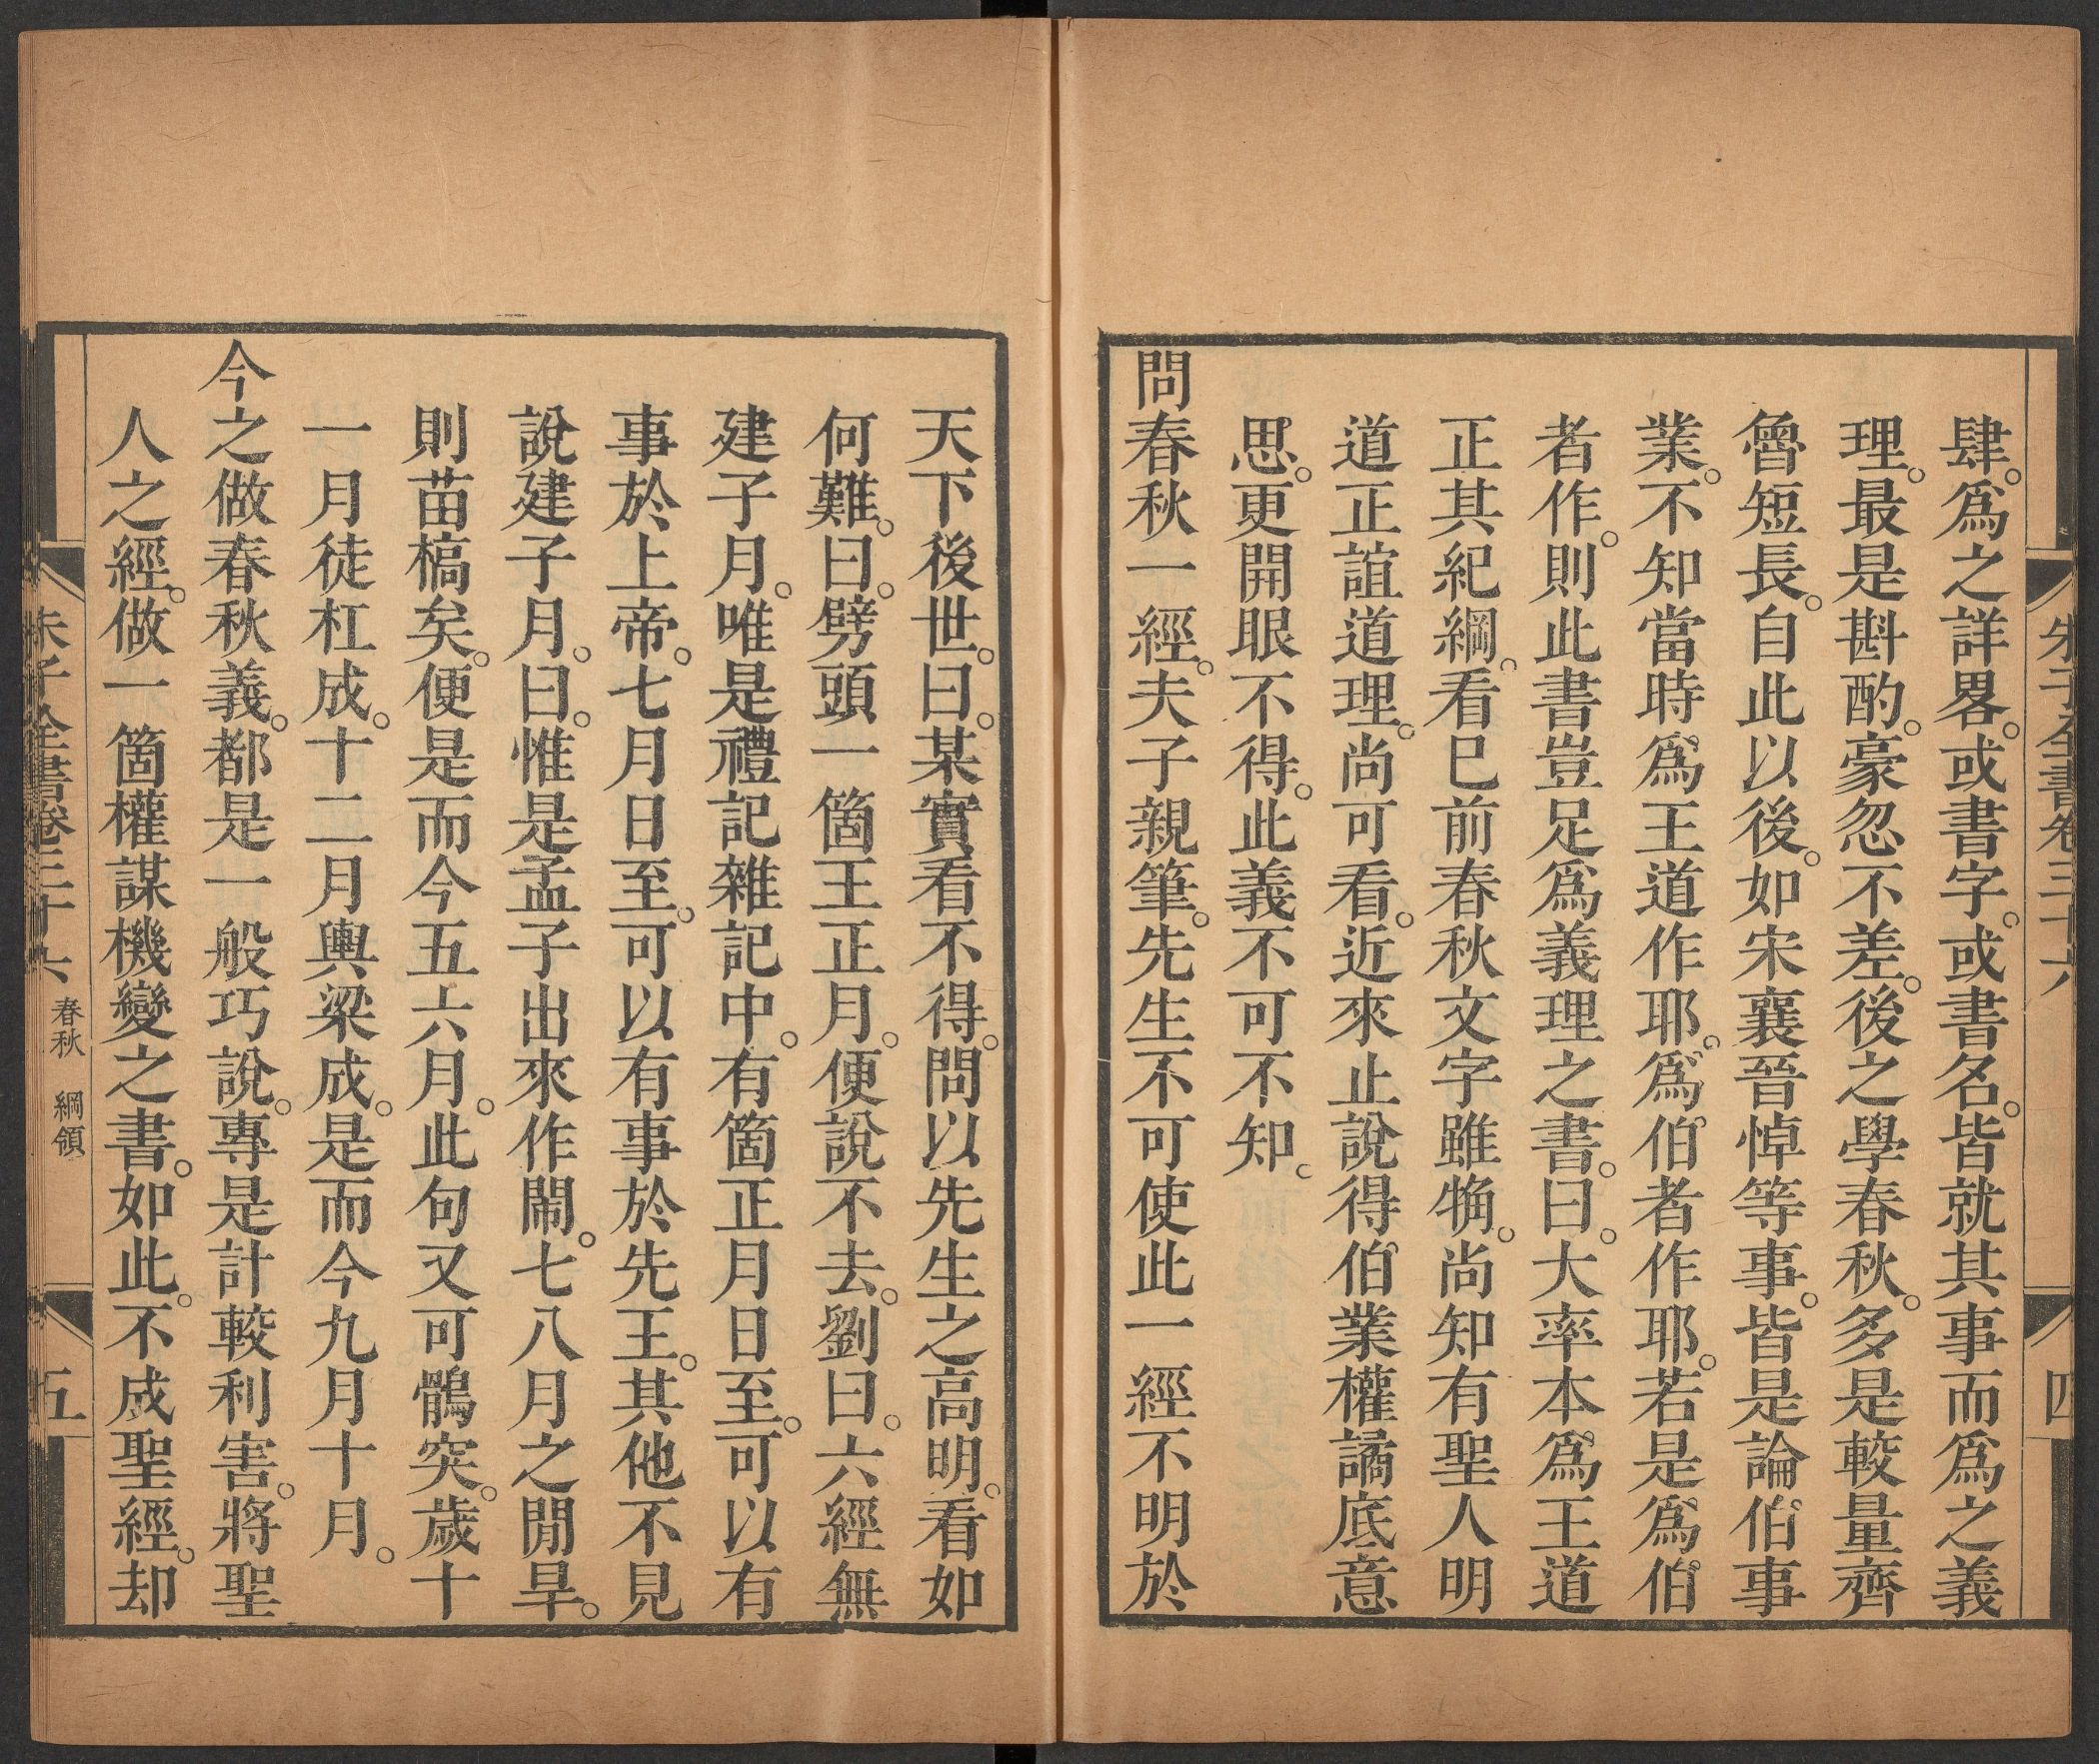 朱子全書卷三十六
四
肆。爲之詳畧。或書字。或書名。皆就其事而爲之義
理。最是斟酌。豪忽不差。後之學春秋。多是較量齊
魯短長。自此以後。如宋襄晉悼等事。皆是論伯事
業。不知當時爲王道作耶。爲伯者作耶。若是爲伯
者作。則此書豈足爲義理之書。曰。大率本爲王道
正其紀綱。看巳前春秋文字雖觕。尚知有聖人明
道正誼道理。尚可看。近來止說得伯業權譎底意
思。更開眼不得。此義不可不知。
問春秋一經。夫子親筆。先生不可使此一經不明於
天下後世。曰。某實看不得。問以先生之高明。看如
何難。曰。劈頭一箇王正月。便說不去。劉曰。六經無
建子月。唯是禮記雜記中。有箇正月日至。可以有
事於上帝。七月日至。可以有事於先王。其他不見
說建子月。曰。惟是孟子出來作鬧。七八月之閒旱。
則苗槁矣。便是而今五六月。此句又可鶻突。歲十
一月徒杠成。十二月輿梁成。是而今九月十月。
今之做春秋義。都是一般巧說。專是計較利害。將聖
人之經。做一箇權謀機變之書。如此。不成聖經。却
朱子全書卷三十六 春秋 綱領
五